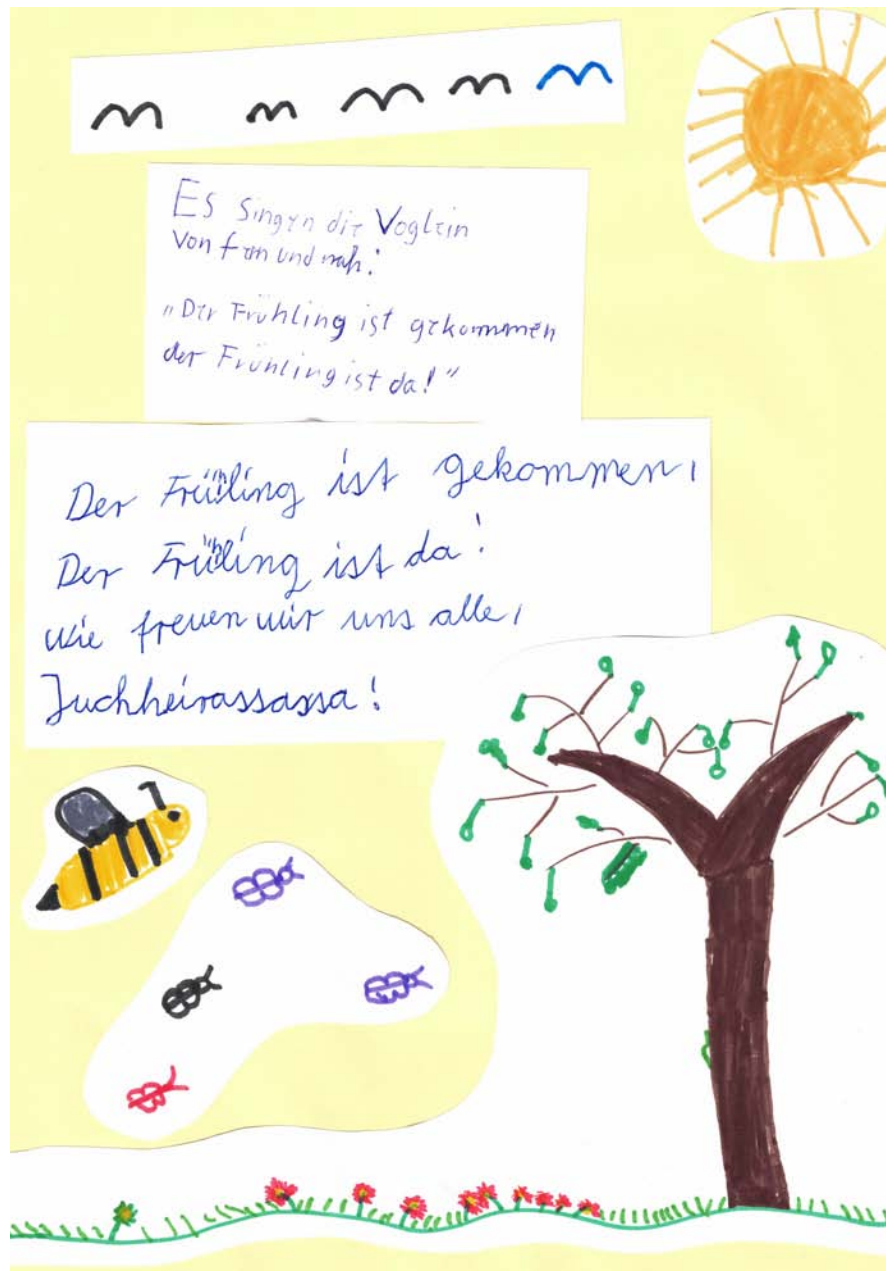 Es singen die Voglein
von fern und nah:
„Der Frühling ist gekommen
der Frühling ist da!"
Der Frühling ist gekommen,
Der Frühling ist da!
wie freuen wir uns alle,
Juchheirassassa!